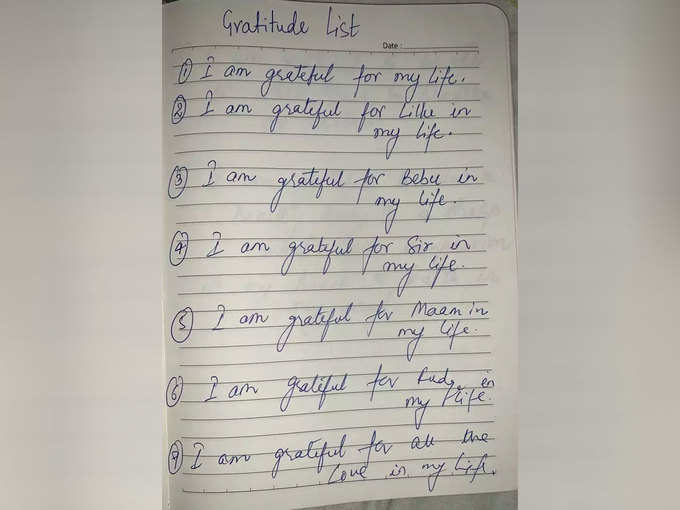 Gratitude List
Date :
① I am grateful for my life.
② I am grateful for Lillu in
my life.
③ I am grateful for Bebu in
my life.
④ I am grateful for Sir in
my life.
⑤ I am grateful for Maam in
my life.
⑥ I am grateful for in
my life.
⑦ I am grateful for all the
Love in my Life.